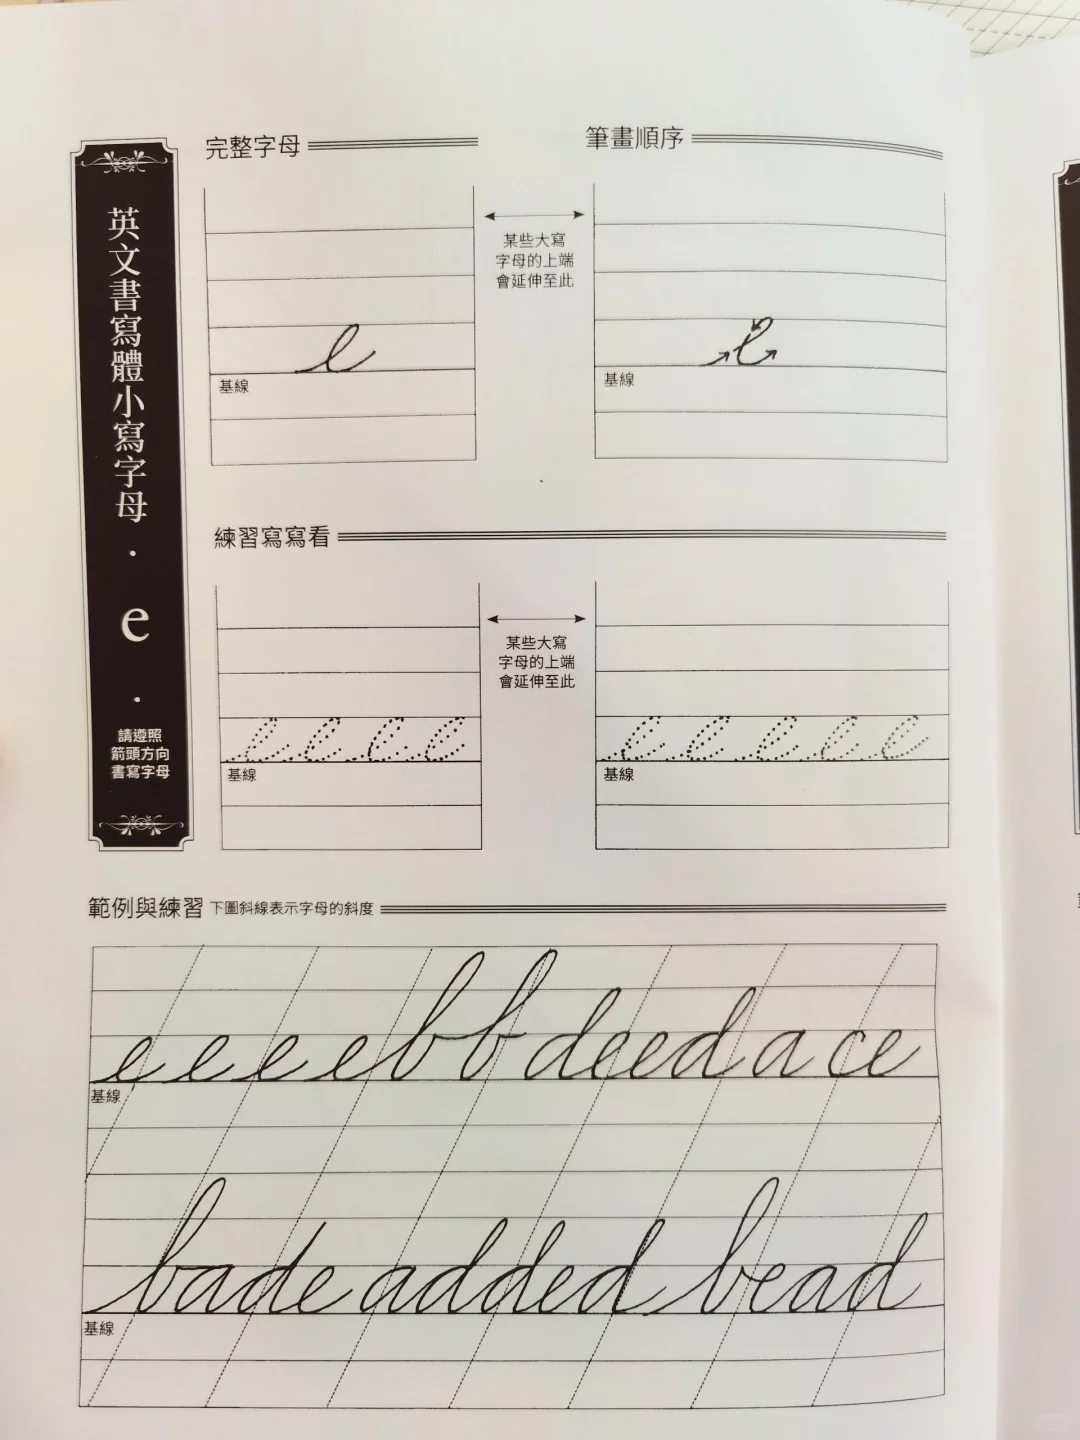 英文書寫體小寫字母
·
e
·
請遵照
箭頭方向
書寫字母
完整字母
筆畫順序
e
基線
某些大寫
字母的上端
會延伸至此
e
基線
練習寫寫看
e e e e
基線
某些大寫
字母的上端
會延伸至此
e e e e e
基線
範例與練習 下圖斜線表示字母的斜度
e e e e b b deed a ce
基線
bade added bead
基線